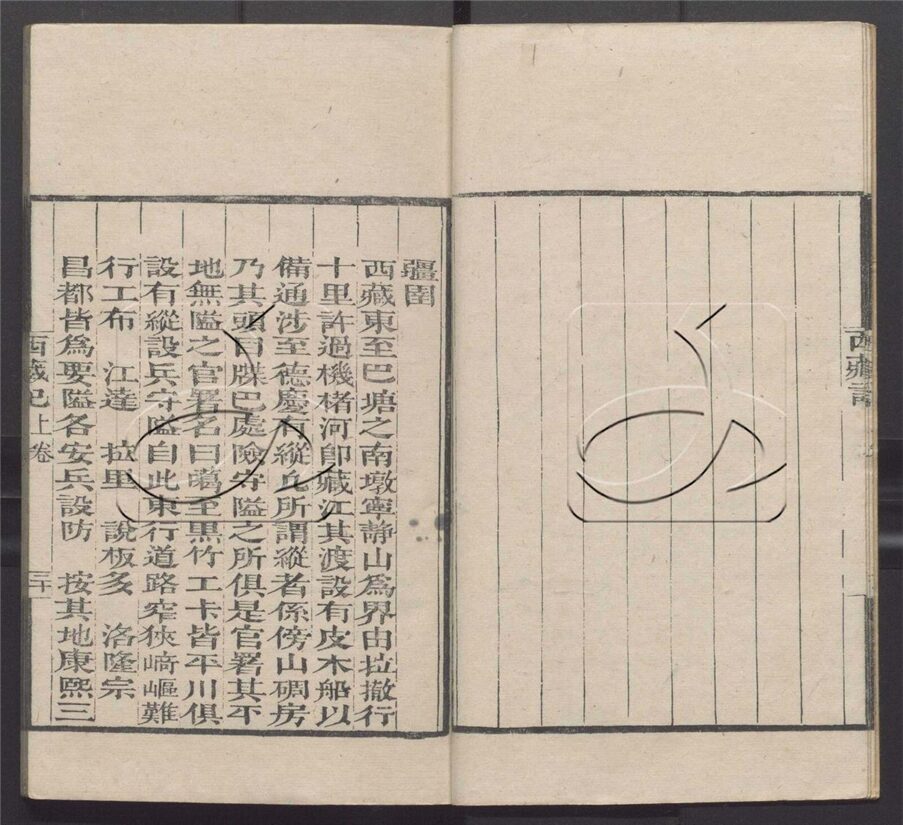 西藏記
疆圉
西藏東至巴塘之南墩寧靜山爲界由拉撒行
十里許過機楮河卽藏江其渡設有皮木船以
備通涉至德慶有縱凡所謂縱者係傍山碉房
乃其頭目牒巴處險守隘之所俱是官署其不
地無隘之官署名曰噶至黑竹工卡皆平川俱
設有縱設兵守隘自此東行道路窄狹崎嶇難
行工布 江達 拉里 說板多 洛隆宗
昌都皆爲要隘各安兵設防 按其地康熙三
西藏記上卷 三十